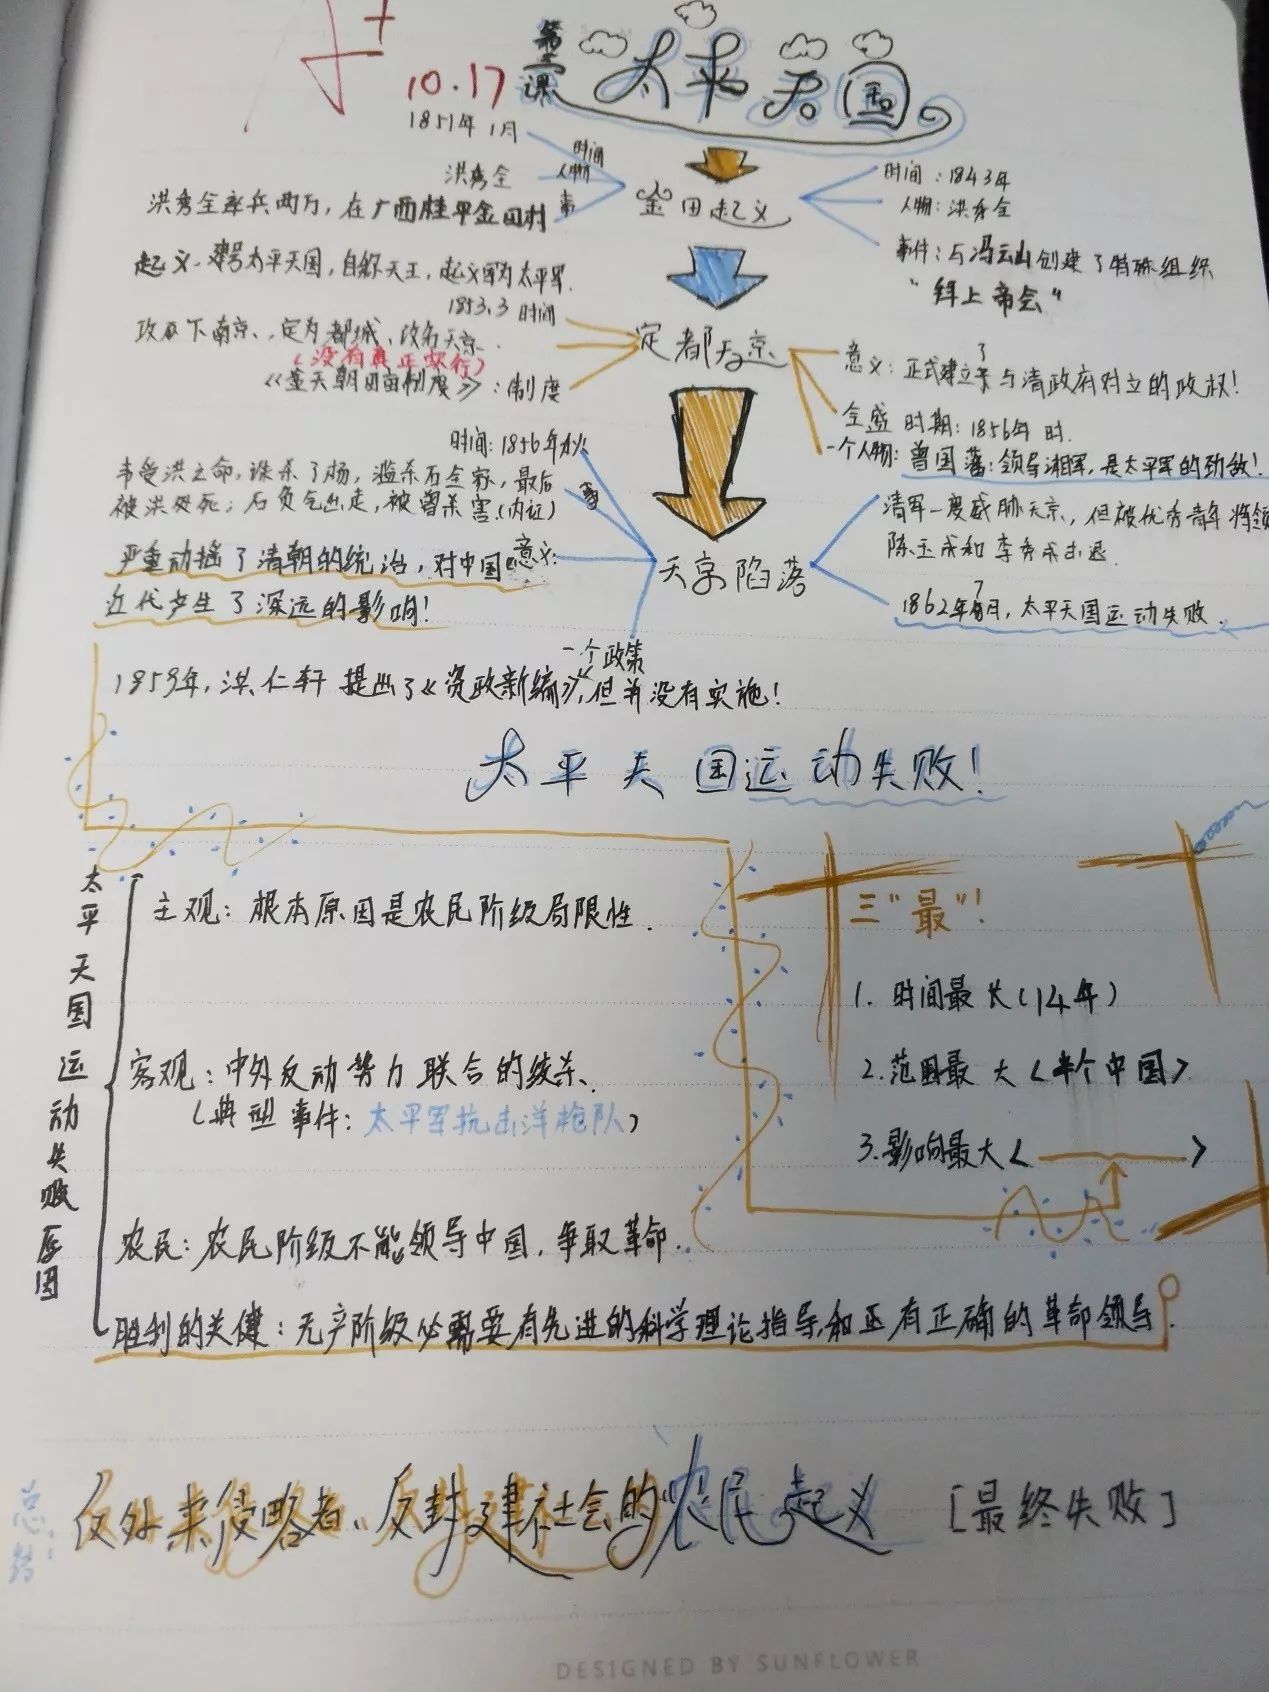 10.17
第三课 太平天国
1851年1月 时间
洪秀全 人物
洪秀全率兵两万，在广西桂平金田村 事
起义、建号太平天国，自称天王，起义军为太平军.
金田起义
时间：1843年
人物：洪秀全
事件：与冯云山创建了特殊组织
“拜上帝会”
1853.3 时间
攻下南京、定为都城、改名天京、
(没有真正实行)
：制度
定都天京
意义：正式建立了与清政府对立的政权！
全盛时期：1856年时.
一个人物：曾国藩：领导湘军，是太平军的劲敌！
时间：1856年秋
韦受洪之命，诛杀了杨，滥杀石全家，最后
被洪处死；石负气出走，被曾杀害.(内讧) 事
严重动摇了清朝的统治，对中国 意义：
近代产生了深远的影响！
天京陷落
清军一度威胁天京，但被优秀青年将领
陈玉成和李秀成击退.
1862年7月，太平天国运动失败.
一个政策
1859年，洪仁轩提出了《资政新编》，但并没有实施！
太平天国运动失败！
太平天国运动失败原因
主观：根本原因是农民阶级局限性.
客观：中外反动势力联合的绞杀、
(典型事件：太平军抗击洋枪队)
农民：农民阶级不能领导中国，争取革命.
胜利的关健：无产阶级必需要有先进的科学理论指导，和正有正确的革命领导.
三“最”！
1. 时间最长(14年)
2.范围最大<半个中国>
3.影响最大< >
总结：
反外来侵略者、反封建社会的“农民起义 [最终失败]
DESIGNED BY SUNFLOWER